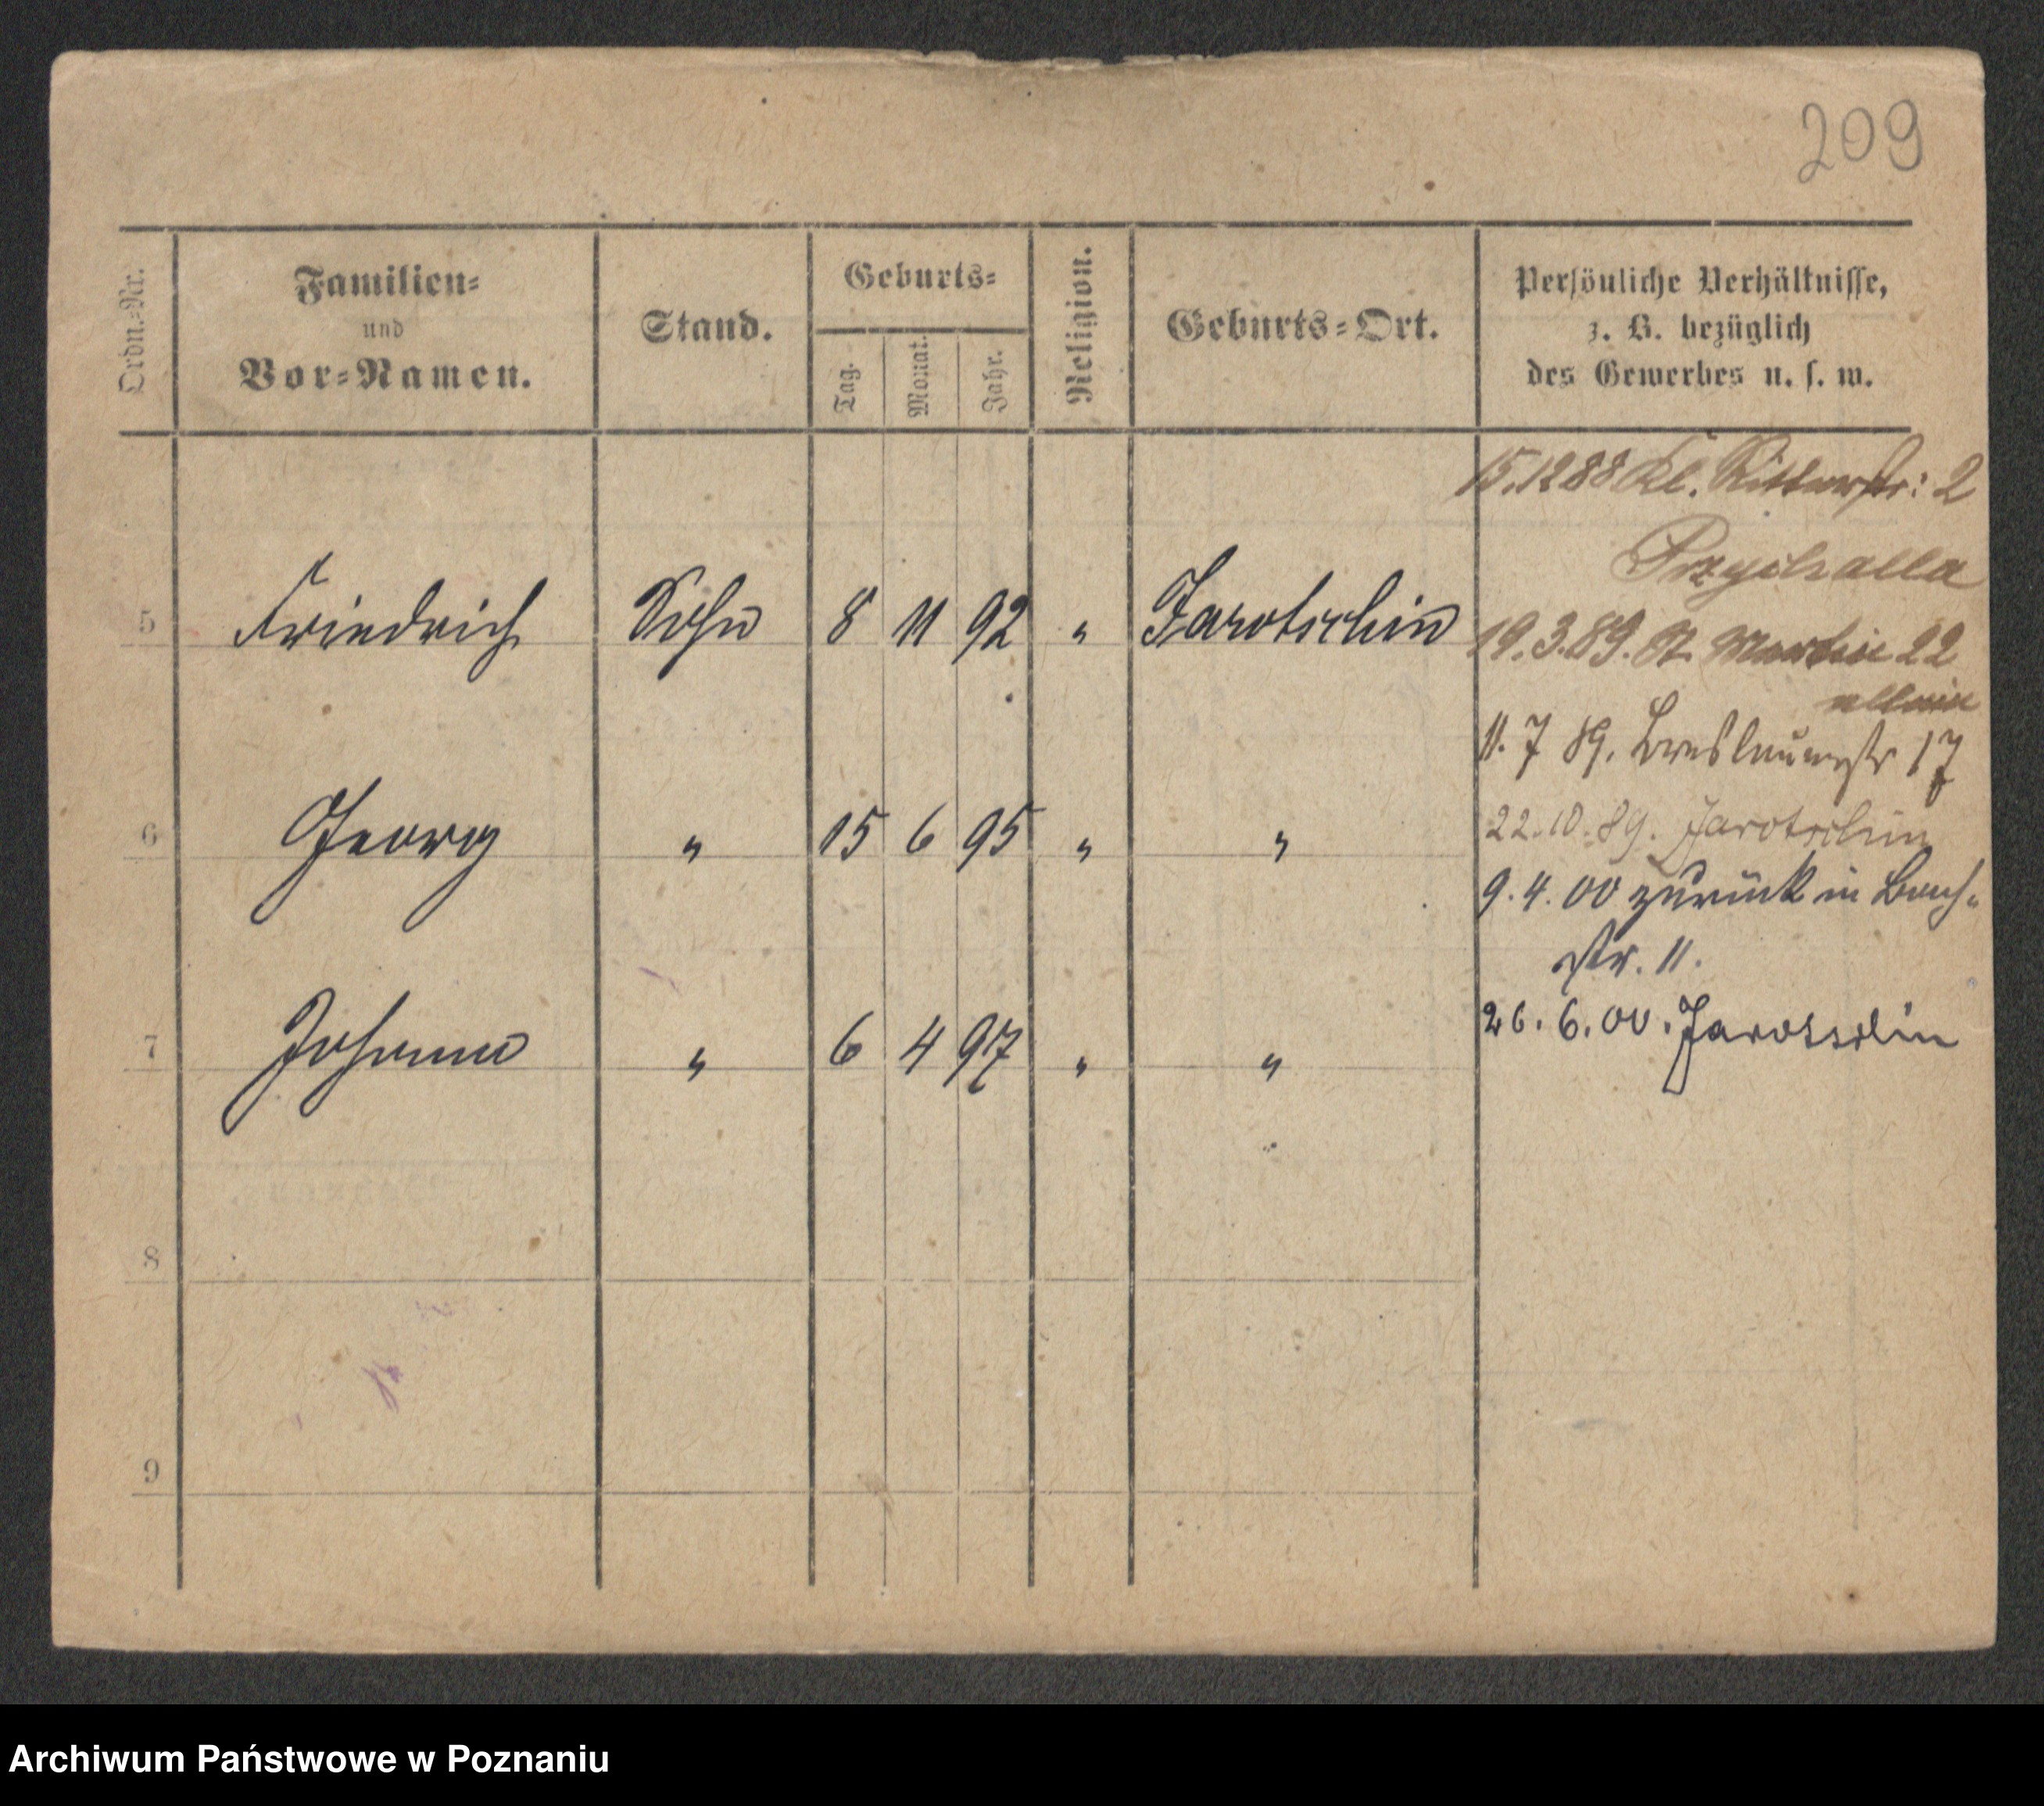 209
Ordn.-Nr.
Familien-
und
Vor-Namen.
Stand.
Geburts-
Tag.
Monat.
Jahr.
Religion.
Geburts-Ort.
Persönliche Verhältnisse,
z. B. bezüglich
des Gewerbes u. s. w.
15.12 88 Kl. Ritterstr: 2
Przychalla
5 Friedrich Sohn 8 11 92 " Jarotschin
19.3.89. St. Martin 22
allein
11. 7 89. Breslauerstr 17
6 Georg " 15 6 95 " "
22.10.89. Jarotschin
9.4.00 zurück in Bach-
str. 11.
7 Johann " 6 4 97 " "
26.6.00. Jarotschin
8
9
Archiwum Państwowe w Poznaniu